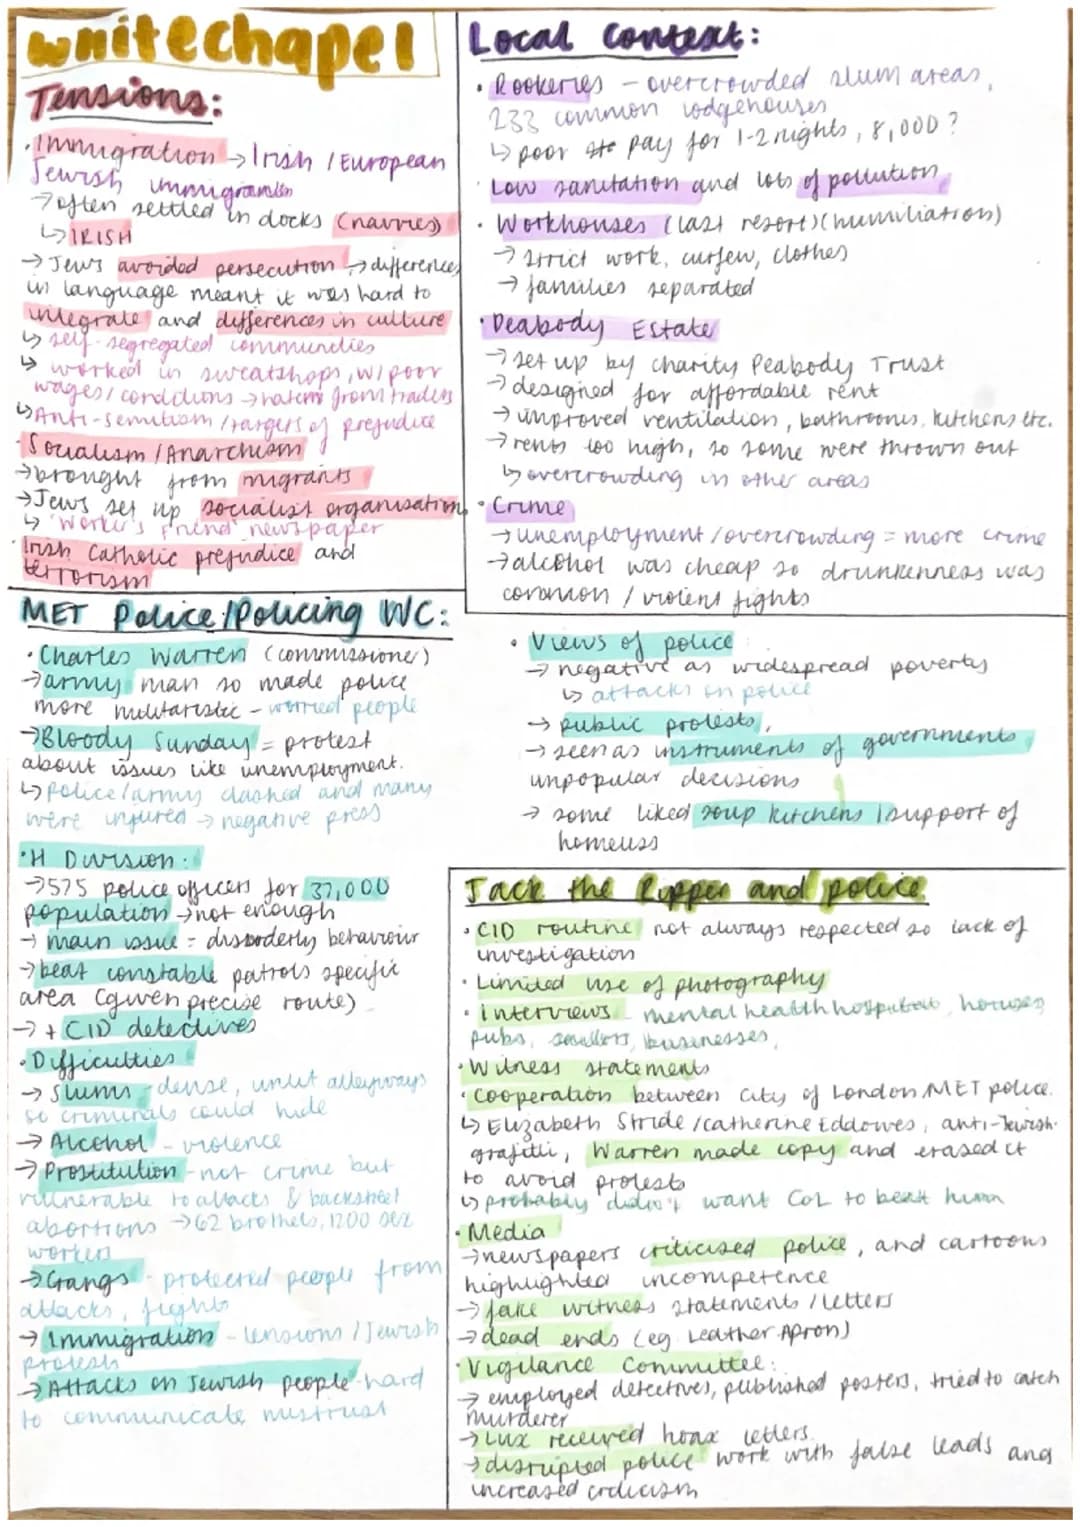 whitechapel
Tensions:
· Immigration → Irish / European
Jewish immigrants
→ often settled in docks (navvies)
↳ IRISH
→ Jews avoided persecution → differences
in language meant it was hard to
integrate and differences in culture
↳ self-segregated communities
↳ worked in sweatshops, w/ poor
wages/conditions → hatred from traders
↳ Anti-semitism / targets of prejudice
· Socialism / Anarchism
→ brought from migrants
→ Jews set up socialist organisation
↳ 'Worker's Friend' newspaper
· Irish Catholic prejudice and
terrorism
Local Context:
· Rookeries – overcrowded slum areas,
233 common lodgehouses
↳ poor pay for 1-2 nights, 8,000?
· Low sanitation and lots of pollution
· Workhouses (last resort) (humiliation)
→ strict work, curfew, clothes
→ families separated
· Peabody Estate
→ set up by charity Peabody Trust
→ designed for affordable rent
→ improved ventilation, bathrooms, kitchens etc.
→ rents too high, so some were thrown out
↳ overcrowding in other areas
· Crime
→ unemployment / overcrowding = more crime
→ alcohol was cheap so drunkenness was
common / violent fights
MET Police/Policing WC:
· Charles Warren (commissioner)
→ army man so made police
more militaristic – worried people
→ Bloody Sunday = protest
about issues like unemployment.
↳ police/army clashed and many
were injured → negative press
· H Division:
→ 575 police officers for 37,000
population → not enough
→ main issue = disorderly behaviour
→ beat constable patrols specific
area (given precise route)
→ + CID detectives
· Difficulties
→ Slums – dense, unlit alleyways
so criminals could hide
→ Alcohol – violence
→ Prostitution – not crime but
vulnerable to attacks & backstreet
abortions → 62 brothels, 1200 sex
workers
→ Gangs – protected people from
attacks, fights
→ Immigration – tensions / Jewish
protests
→ Attacks on Jewish people – hard
to communicate, mistrust
· Views of police
→ negative as widespread poverty
↳ attacks on police
→ public protests,
→ seen as instruments of governments
unpopular decisions
→ some liked soup kitchens / support of
homeless
Jack the Ripper and police
· CID routine not always respected so lack of
investigation
· Limited use of photography
· interviews – mental health hospitals, houses,
pubs, businesses,
· Witness statements
· Cooperation between City of London, MET police.
↳ Elizabeth Stride / Catherine Eddowes, anti-Jewish
grafitti, Warren made copy and erased it
to avoid protests
↳ probably didn't want CoL to beat him
· Media
→ newspapers criticised police, and cartoons
highlighted incompetence
→ fake witness statements / letters
→ dead ends (eg. Leather Apron)
· Vigilance Committee:
→ employed detectives, published posters, tried to catch
murderer
→ Lux received hoax letters.
→ disrupted police work with false leads and
increased criticism